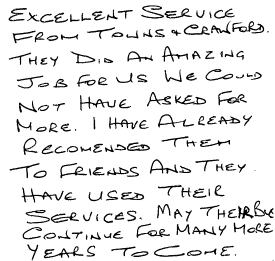 EXCELLENT SERVICE
FROM TOWNS & CRAWFORD.
THEY DID AN AMAZING
JOB FOR US WE COULD
NOT HAVE ASKED FOR
MORE. I HAVE ALREADY
RECOMENDED THEM
TO FRIENDS AND THEY
HAVE USED THEIR
SERVICES. MAY THEIR
CONTINUE FOR MANY MORE
YEARS TO COME.